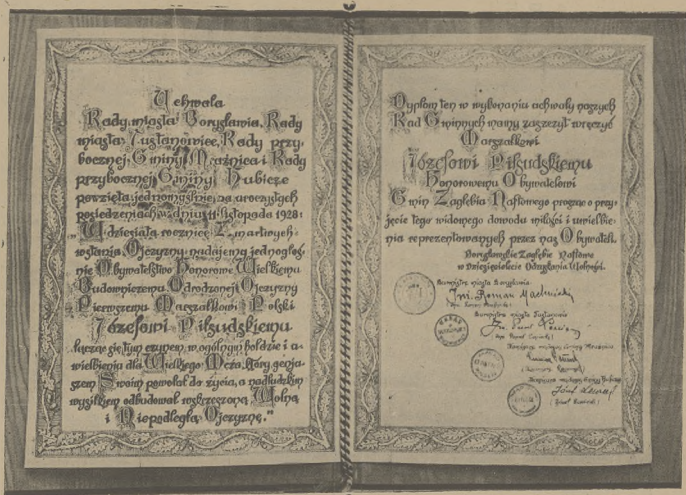 Uchwała
Rady miasta Borysławia, Rady
miasta Tustanowice, Rady przy-
bocznej, Gminy Mraźnica i Rady
przybocznej Gminy Hubicze
powzięta jednomyślnie, na uroczystych
posiedzeniach w dniu 11 listopada 1928:
„W dziesiątą rocznicę Zmartwych-
wstania Ojczyzny nadajemy jednogłoś-
nie Obywatelstwo Honorowe Wielkiemu
Budowniczemu Odrodzonej Ojczyzny
Pierwszemu Marszałkowi Polski
Józefowi Piłsudskiemu
łącząc się tym czynem, w ogólnym hołdzie i u-
wielbieniu dla Wielkiego Męża, który genju-
szem Swoim powołał do życia, a nadludzkim
wysiłkiem odbudował wskrzeszoną Wolną
i Niepodległą Ojczyznę."
Dyplom ten w wykonaniu uchwały naszych
Rad Gminnych mamy zaszczyt wręczyć
Marszałkowi
Józefowi Piłsudskiemu
Honorowemu Obywatelowi
Gmin Zagłębia Naftowego prosząc o przy-
jęcie tego widomego dowodu miłości i uwielbie-
nia reprezentowanych przez nas Obywateli.
Borysławskie Zagłębie Naftowe
w Dziesięciolecie Odzyskania Wolności.
Burmistrz miasta Borysławia
Inż. Roman Machnicki
Burmistrz miasta Tustanowic